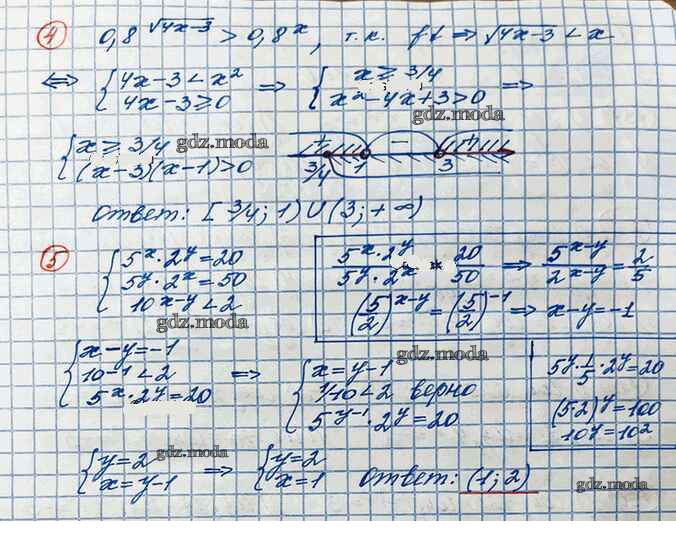 ④ 0,8^√(4x-3) > 0,8^x, т.к. f↓ ⇒ √(4x-3) < x
⇔ { 4x-3 < x² ⇒ { x ≥ 3/4 ⇒
4x-3 ≥ 0 x²-4x+3 > 0
{ x ≥ 3/4 gdz.moda + - +
(x-3)(x-1) > 0 3/4 1 3
gdz.moda
Ответ: [3/4; 1) ∪ (3; +∞)
⑤ { 5^x·2^y = 20
5^y·2^x = 50
10^(x-y) < 2
gdz.moda
(5^x·2^y)/(5^y·2^x) = 20/50 ⇒ 5^(x-y)/2^(x-y) = 2/5
(5/2)^(x-y) = (5/2)^(-1) ⇒ x-y = -1
gdz.moda
{ x-y = -1
10^(-1) < 2 ⇒
5^x·2^y = 20
{ x = y-1
1/10 < 2 верно
5^(y-1)·2^y = 20
5^y·1/5·2^y = 20
(5·2)^y = 100
10^y = 10²
{ y = 2 gdz.moda ⇒ { y = 2 Ответ: (1; 2)
x = y-1 x = 1
gdz.moda